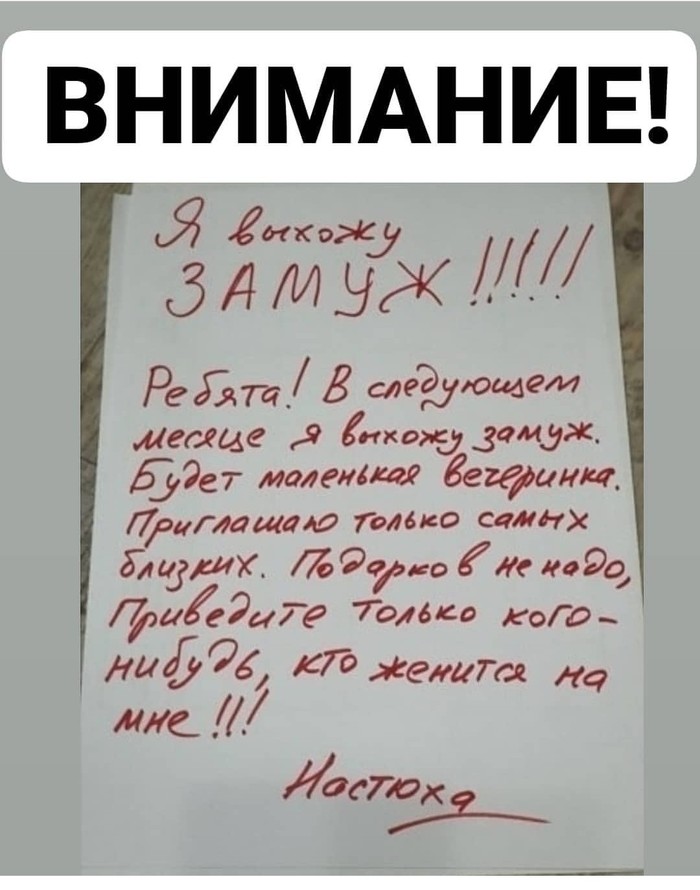 ВНИМАНИЕ!
Я выхожу
ЗАМУЖ !!!!!
Ребята! В следующем
месяце я выхожу замуж.
Будет маленькая вечеринка.
Приглашаю только самых
близких. Подарков не надо,
Приведите только кого-
нибудь, кто женится на
мне !!!
Настюха